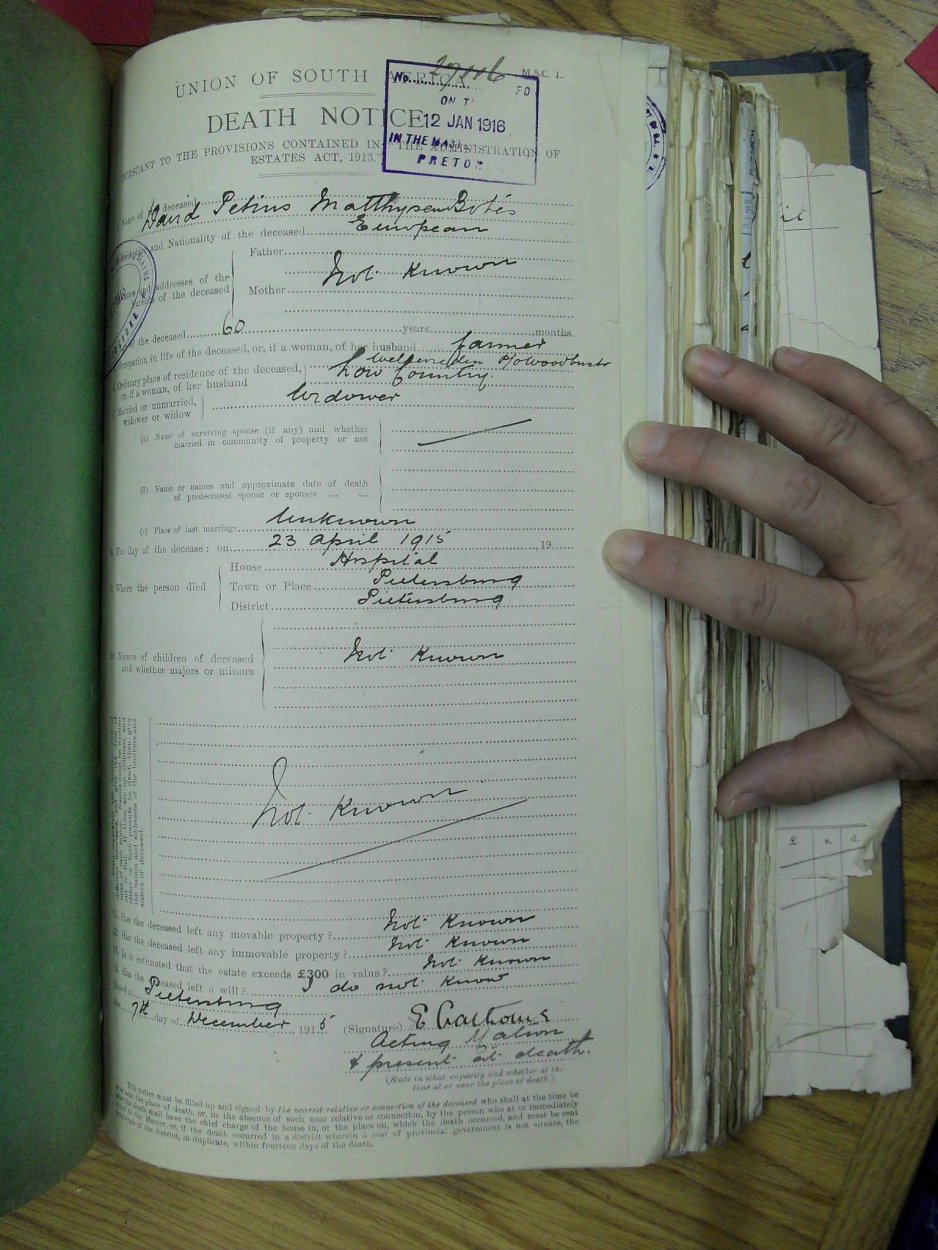 27116
M.S.C. 1.
UNION OF SOUTH AFRICA
No.
ON T
12 JAN 1916
IN THE MAS
PRETOR
DEATH NOTICE
PURSUANT TO THE PROVISIONS CONTAINED IN THE ADMINISTRATION OF
ESTATES ACT, 1913.
Name of deceased David Petius Matthysen Botes
and Nationality of the deceased European
Father
addresses of the
of the deceased
Not Known
Mother
the deceased 60 years months
Occupation in life of the deceased, or, if a woman, of her husband farmer
Ordinary place of residence of the deceased,
or, if a woman, of her husband
P/o Woodbush
Low Country
Married or unmarried,
widower or widow
Widower
(a) Name of surviving spouse (if any) and whether
married in community of property or not
(b) Name or names and approximate date of death
of predeceased spouse or spouses ... ...
(c) Place of last marriage Unknown
The day of the decease: on 23 April 1915 19
House Hospital
Where the person died Town or Place Pietersburg
District Pietersburg
Names of children of deceased
and whether majors or minors
Not Known
Not Known
11. Has the deceased left any movable property? Not Known
Has the deceased left any immovable property? Not Known
Is it estimated that the estate exceeds £300 in value? Not Known
Has the deceased left a will? I do not know
Dated at Pietersburg
7th day of December 1915 (Signature) E
Acting Matron
& present at death.
(State in what capacity and whether at the
time at or near the place of death.)
This notice must be filled up and signed by the nearest relative or connection of the deceased who shall at the time be
near the place of death, or, in the absence of such near relative or connection, by the person who at or immediately
after the death shall have the chief charge of the house in, or the place on, which the death occurred, and must be sent
to the Master, or, if the death occurred in a district wherein a seat of provincial government is not situate, the
of the district, in duplicate, within fourteen days of the death.
£ s. d.